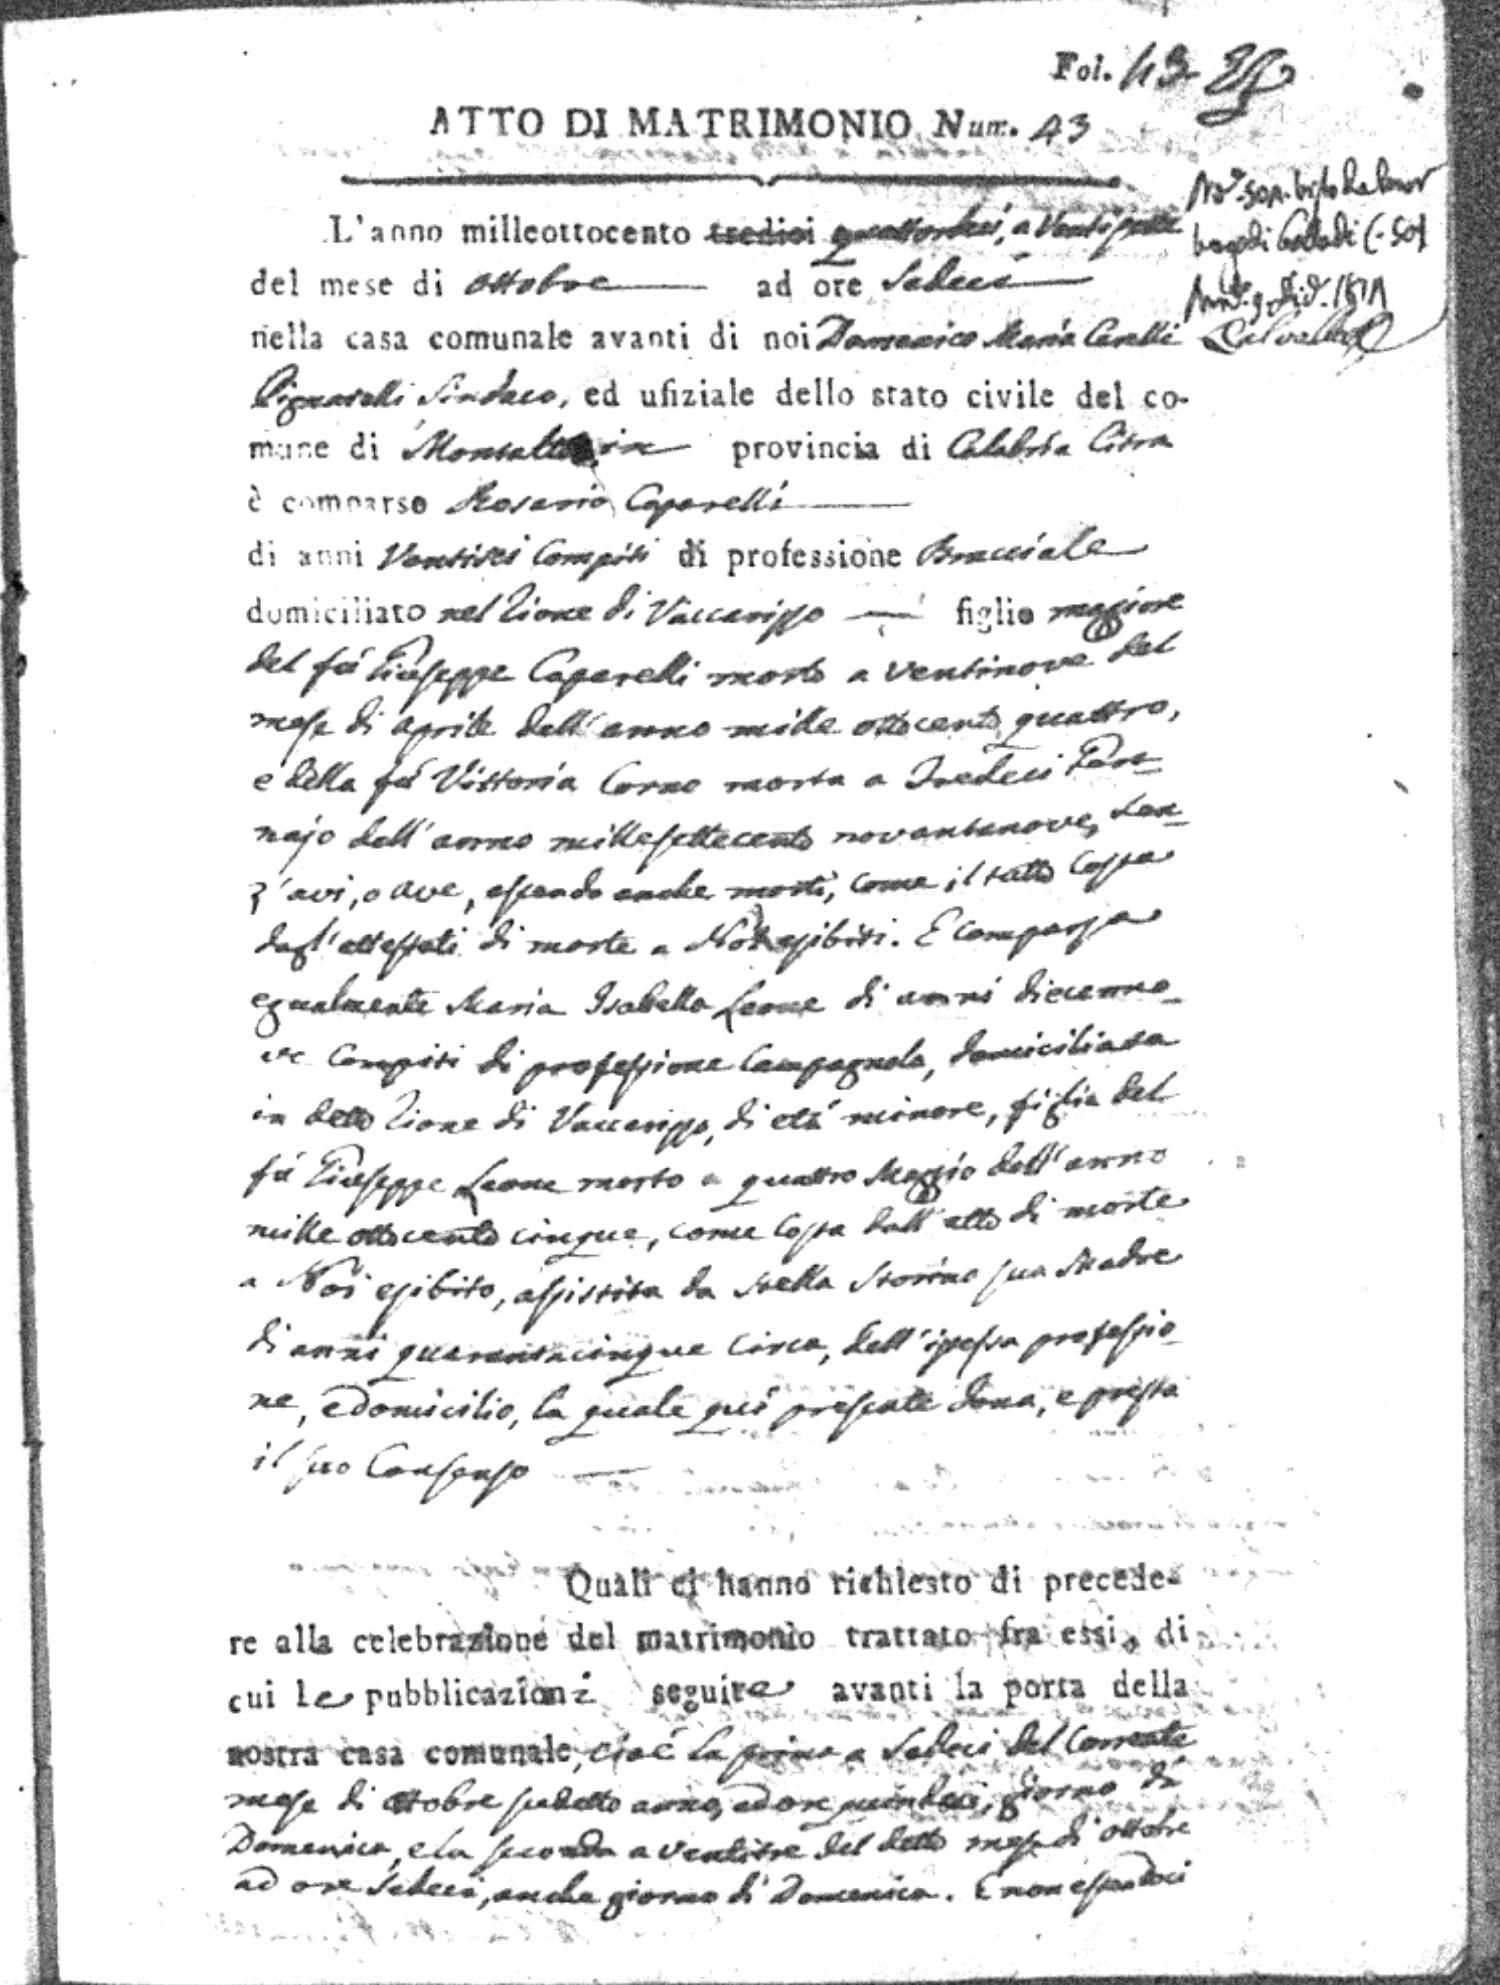 Fol. 43
ATTO DI MATRIMONIO Num. 43
L'anno milleottocento tredici quattordeci, a Ventisette
del mese di Ottobre ad ore Sedeci
nella casa comunale avanti di noi Domenico Maria Cavalli
Pignatelli Sindaco, ed ufiziale dello stato civile del co-
mune di Montalto provincia di Calabria Citra
è comparso Rosario Caparelli
di anni Ventisei Compiti di professione Bracciale
domiciliato nel Rione di Vaccarizzo figlio maggiore
del fú Giuseppe Caparelli morto a ventinove del
mese di Aprile dell'anno mille ottocento quattro,
e della fú Vittoria Corno morta a Tredeci Gen-
najo dell'anno millesettecento novantanove, Sen-
z'avi, o ave, essendo anche morti, come il tutto Costa
dagl'attestati di morte a Noi esibiti. E Comparsa
egualmente Maria Isabella Leone di anni diecenno-
ve Compiti di professione Campagnola, domiciliata
in detto Rione di Vaccarizzo, di età minore, figlia del
fú Giuseppe Leone morto a quattro Maggio dell'anno
mille ottocento cinque, come Costa dall'atto di morte
a Noi esibito, assistita da Stella Storino sua Madre
di anni quarantacinque circa, dell'istessa professio-
ne, e domicilio, la quale quì presente dona, e presta
il suo Consenso
Quali ci hanno richiesto di precede-
re alla celebrazione del matrimonio trattato fra essi, di
cui le pubblicazioni seguite avanti la porta della
nostra casa comunale, cioè la prima a Sedeci del Corrente
mese di Ottobre sudetto anno, ad ore quindeci, giorno di
Domenica, e la seconda a ventitre del detto mese di Ottobre
ad ore Sedeci, anche giorno di Domenica. E non essendoci